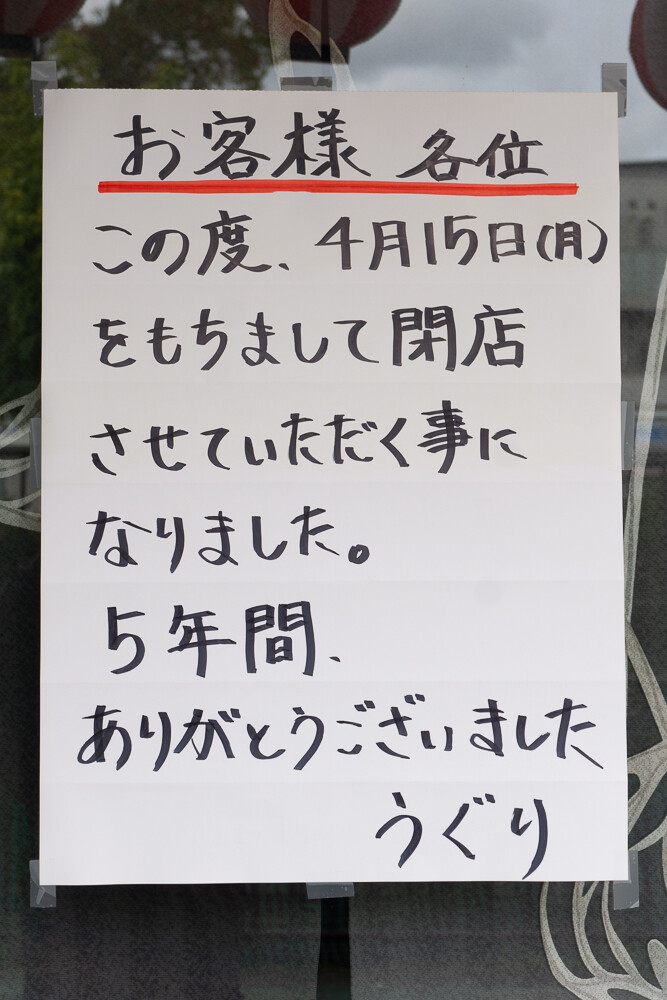 お客様 各位
この度、4月15日(月)
をもちまして閉店
させていただく事に
なりました。
5年間、
ありがとうございました
うぐり